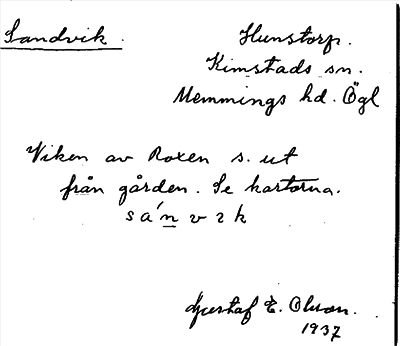 Sandvik.
Hunstorp.
Kimstads sn.
Memmings hd. Ögl
Viken av Roxen s. ut
från gården. Se kartorna.
sánvɩk
Gustaf E. Olson.
1937